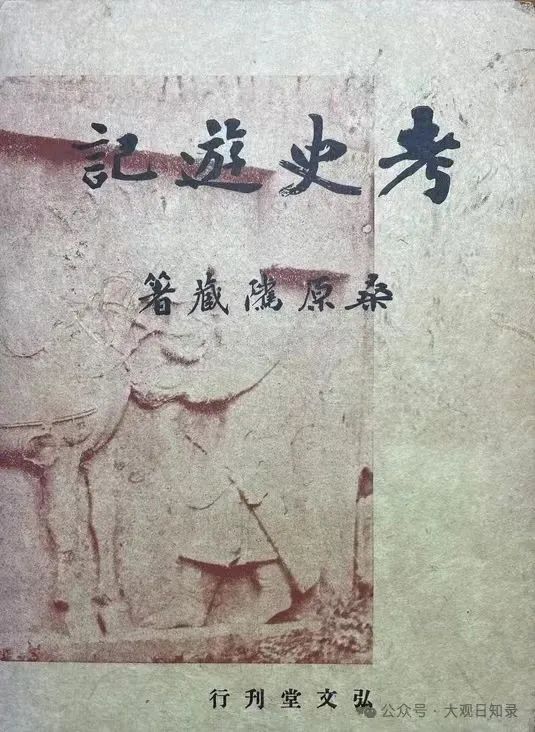 考史遊記
桑原隲藏著
弘文堂刊行
公众号·大观日知录